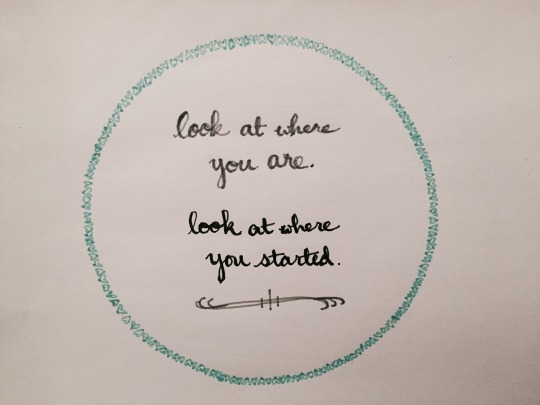 look at where
you are.
look at where
you started.